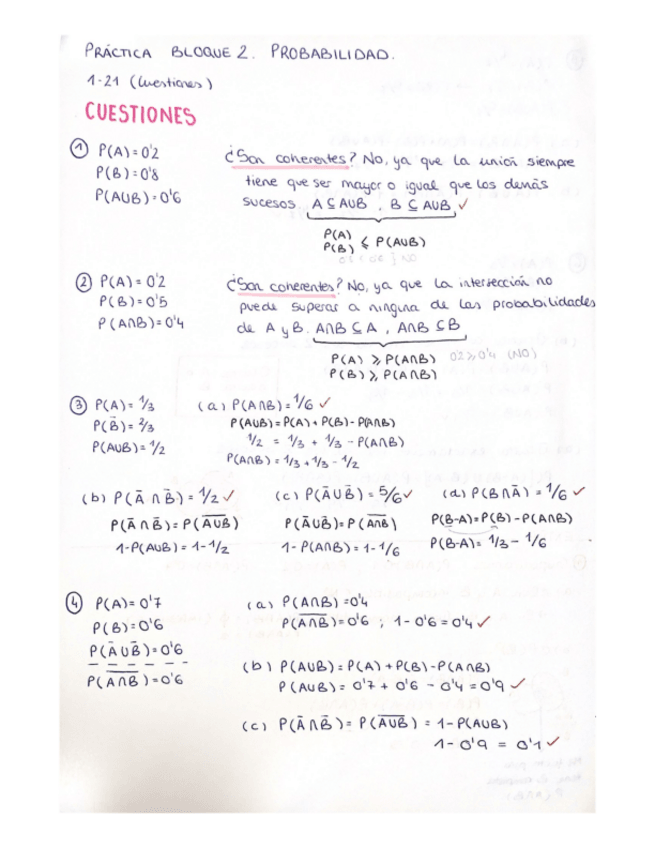 PRÁCTICA BLOQUE 2. PROBABILIDAD.
1-21 (Cuestiones)
CUESTIONES
① P(A)=0'2
P(B)=0'8
P(AUB)=0'6
¿Son coherentes? No, ya que la unión siempre
tiene que ser mayor o igual que los demás
sucesos. A ⊆ AUB, B ⊆ AUB ✓
P(A)
P(B) ≤ P(AUB)
② P(A)=0'2
P(B)=0'5
P(A∩B)=0'4
¿Son coherentes? No, ya que la intersección no
puede superar a ninguna de las probabilidades
de A y B. A∩B ⊆ A, A∩B ⊆ B
P(A) ≥ P(A∩B) 0'2 ≥ 0'4 (NO)
P(B) ≥ P(A∩B)
③ P(A)= 1/3
P(B̄)= 2/3
P(AUB)=1/2
(a) P(A∩B)=1/6 ✓
P(AUB)=P(A)+P(B)-P(A∩B)
1/2 = 1/3 + 1/3 - P(A∩B)
P(A∩B)=1/3+1/3-1/2
(b) P(Ā ∩ B̄)=1/2 ✓
P(Ā∩B̄)=P(A̅U̅B̅)
1-P(AUB)=1-1/2
(c) P(ĀUB̄)=5/6 ✓
P(ĀUB̄)=P(A̅∩̅B̅)
1-P(A∩B)=1-1/6
(d) P(B∩Ā)=1/6 ✓
P(B-A)=P(B)-P(A∩B)
P(B-A)= 1/3 - 1/6
④ P(A)=0'7
P(B)=0'6
P(ĀUB̄)=0'6
P(A̅∩̅B̅)=0'6
(a) P(A∩B)=0'4
P(A̅∩̅B̅)=0'6 ; 1-0'6=0'4 ✓
(b) P(AUB)=P(A)+P(B)-P(A∩B)
P(AUB)=0'7+0'6-0'4=0'9 ✓
(c) P(Ā∩B̄)=P(A̅U̅B̅)=1-P(AUB)
1-0'9=0'1 ✓